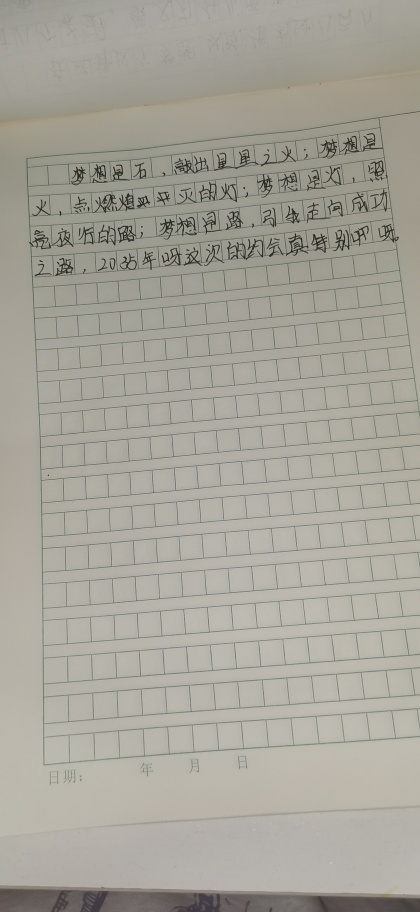 梦想是石，敲出星星之火；梦想是
火，点燃熄灭的灯；梦想是灯，照
亮夜行的路；梦想是路，引我走向成功
之路，2035年呀这次的约会真特别呀
日期： 年 月 日